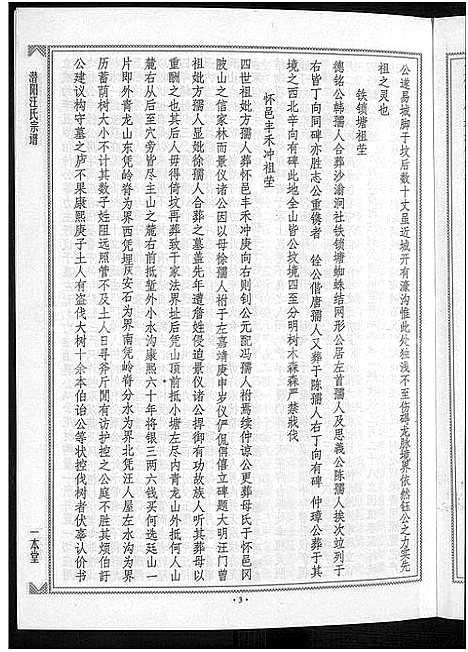 公遂易城脚于坟后数十丈虽近城开有濠沟惟此处独浅不至伤碍龙脉境界依然钰公之力实先
祖之灵也
铁锁塘祖茔
德铭公韩孺人合葬沙瀹洞社铁锁塘蜘蛛结网形公居左首孺人及思義公陈孺人挨次竝列于
右皆丁向同碑亦胜志公重镌者 铨公偕唐孺人又葬于陈孺人右丁向有碑 仲璋公葬于其
境之西北辛向有碑此地全山皆公坟境四至分明树木森森严禁戕伐
怀邑丰禾冲祖茔
四世祖妣方孺人葬怀邑丰禾冲庚向右则钊公元配冯孺人祔焉续仲谅公更葬母氏于怀邑冈
陂山之信家林而景仪诸公因以母徐孺人祔于左嘉靖庚申岁仪俨侃倩僖立碑题大明汪门曾
祖妣方孺人显妣徐孺人合葬之墓盖先年遭詹姓侵迫景仪诸公捍御有功故族人听其葬母以
重酬之也其后人毋得倚坟再葬致干家法界址后凭山顶前抵小塘左尽内青龙山外抵何人山
麓右以后至穴旁皆尽主山之麓右前抵堑外小水沟康熙六十年将银三两六钱买何选廷山一
片即外青龙山东凭岭脊为界西凭埋灰安石为界南凭岭脊分水为界北凭汪人屋左水沟为界
历蓄荫树大小不计其数子姓阻远照管不及土人日寻斧斤閒有访护控之公庭不胜其烦伯訏
公建议构守墓之庐不果康熙庚子土人有盗伐大树十余本伯诒公等状控伐树者伏辜认价书
潜阳汪氏宗谱
一本堂
·3·